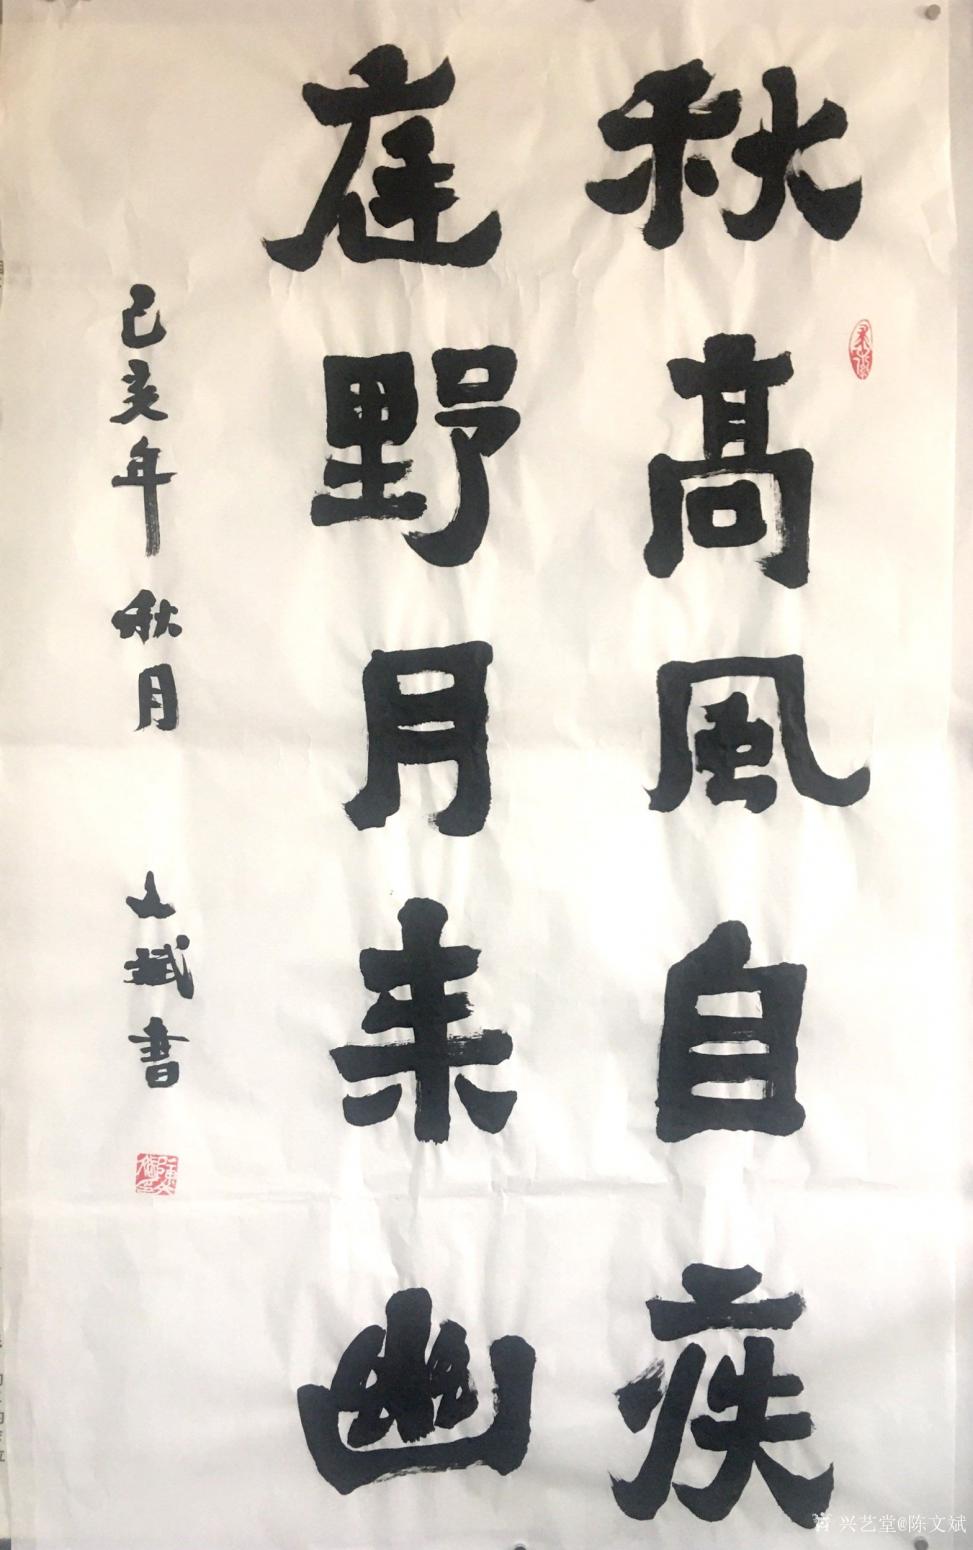 秋高風自疾
庭野月来幽
己亥年 秋月 人斌書
兴艺堂@陈文斌